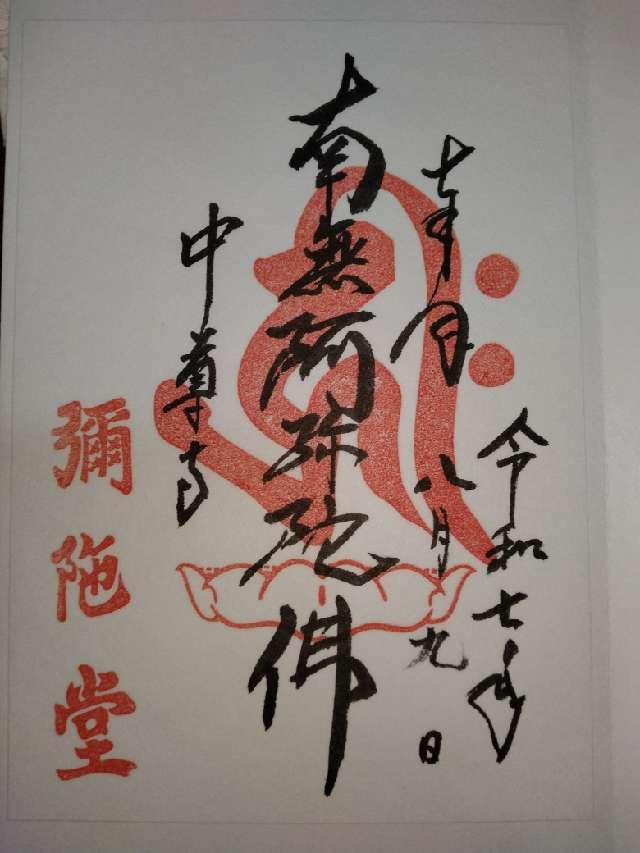 奉拝
令和七年
八月九日
南無阿弥陀佛
中尊寺
彌陀堂